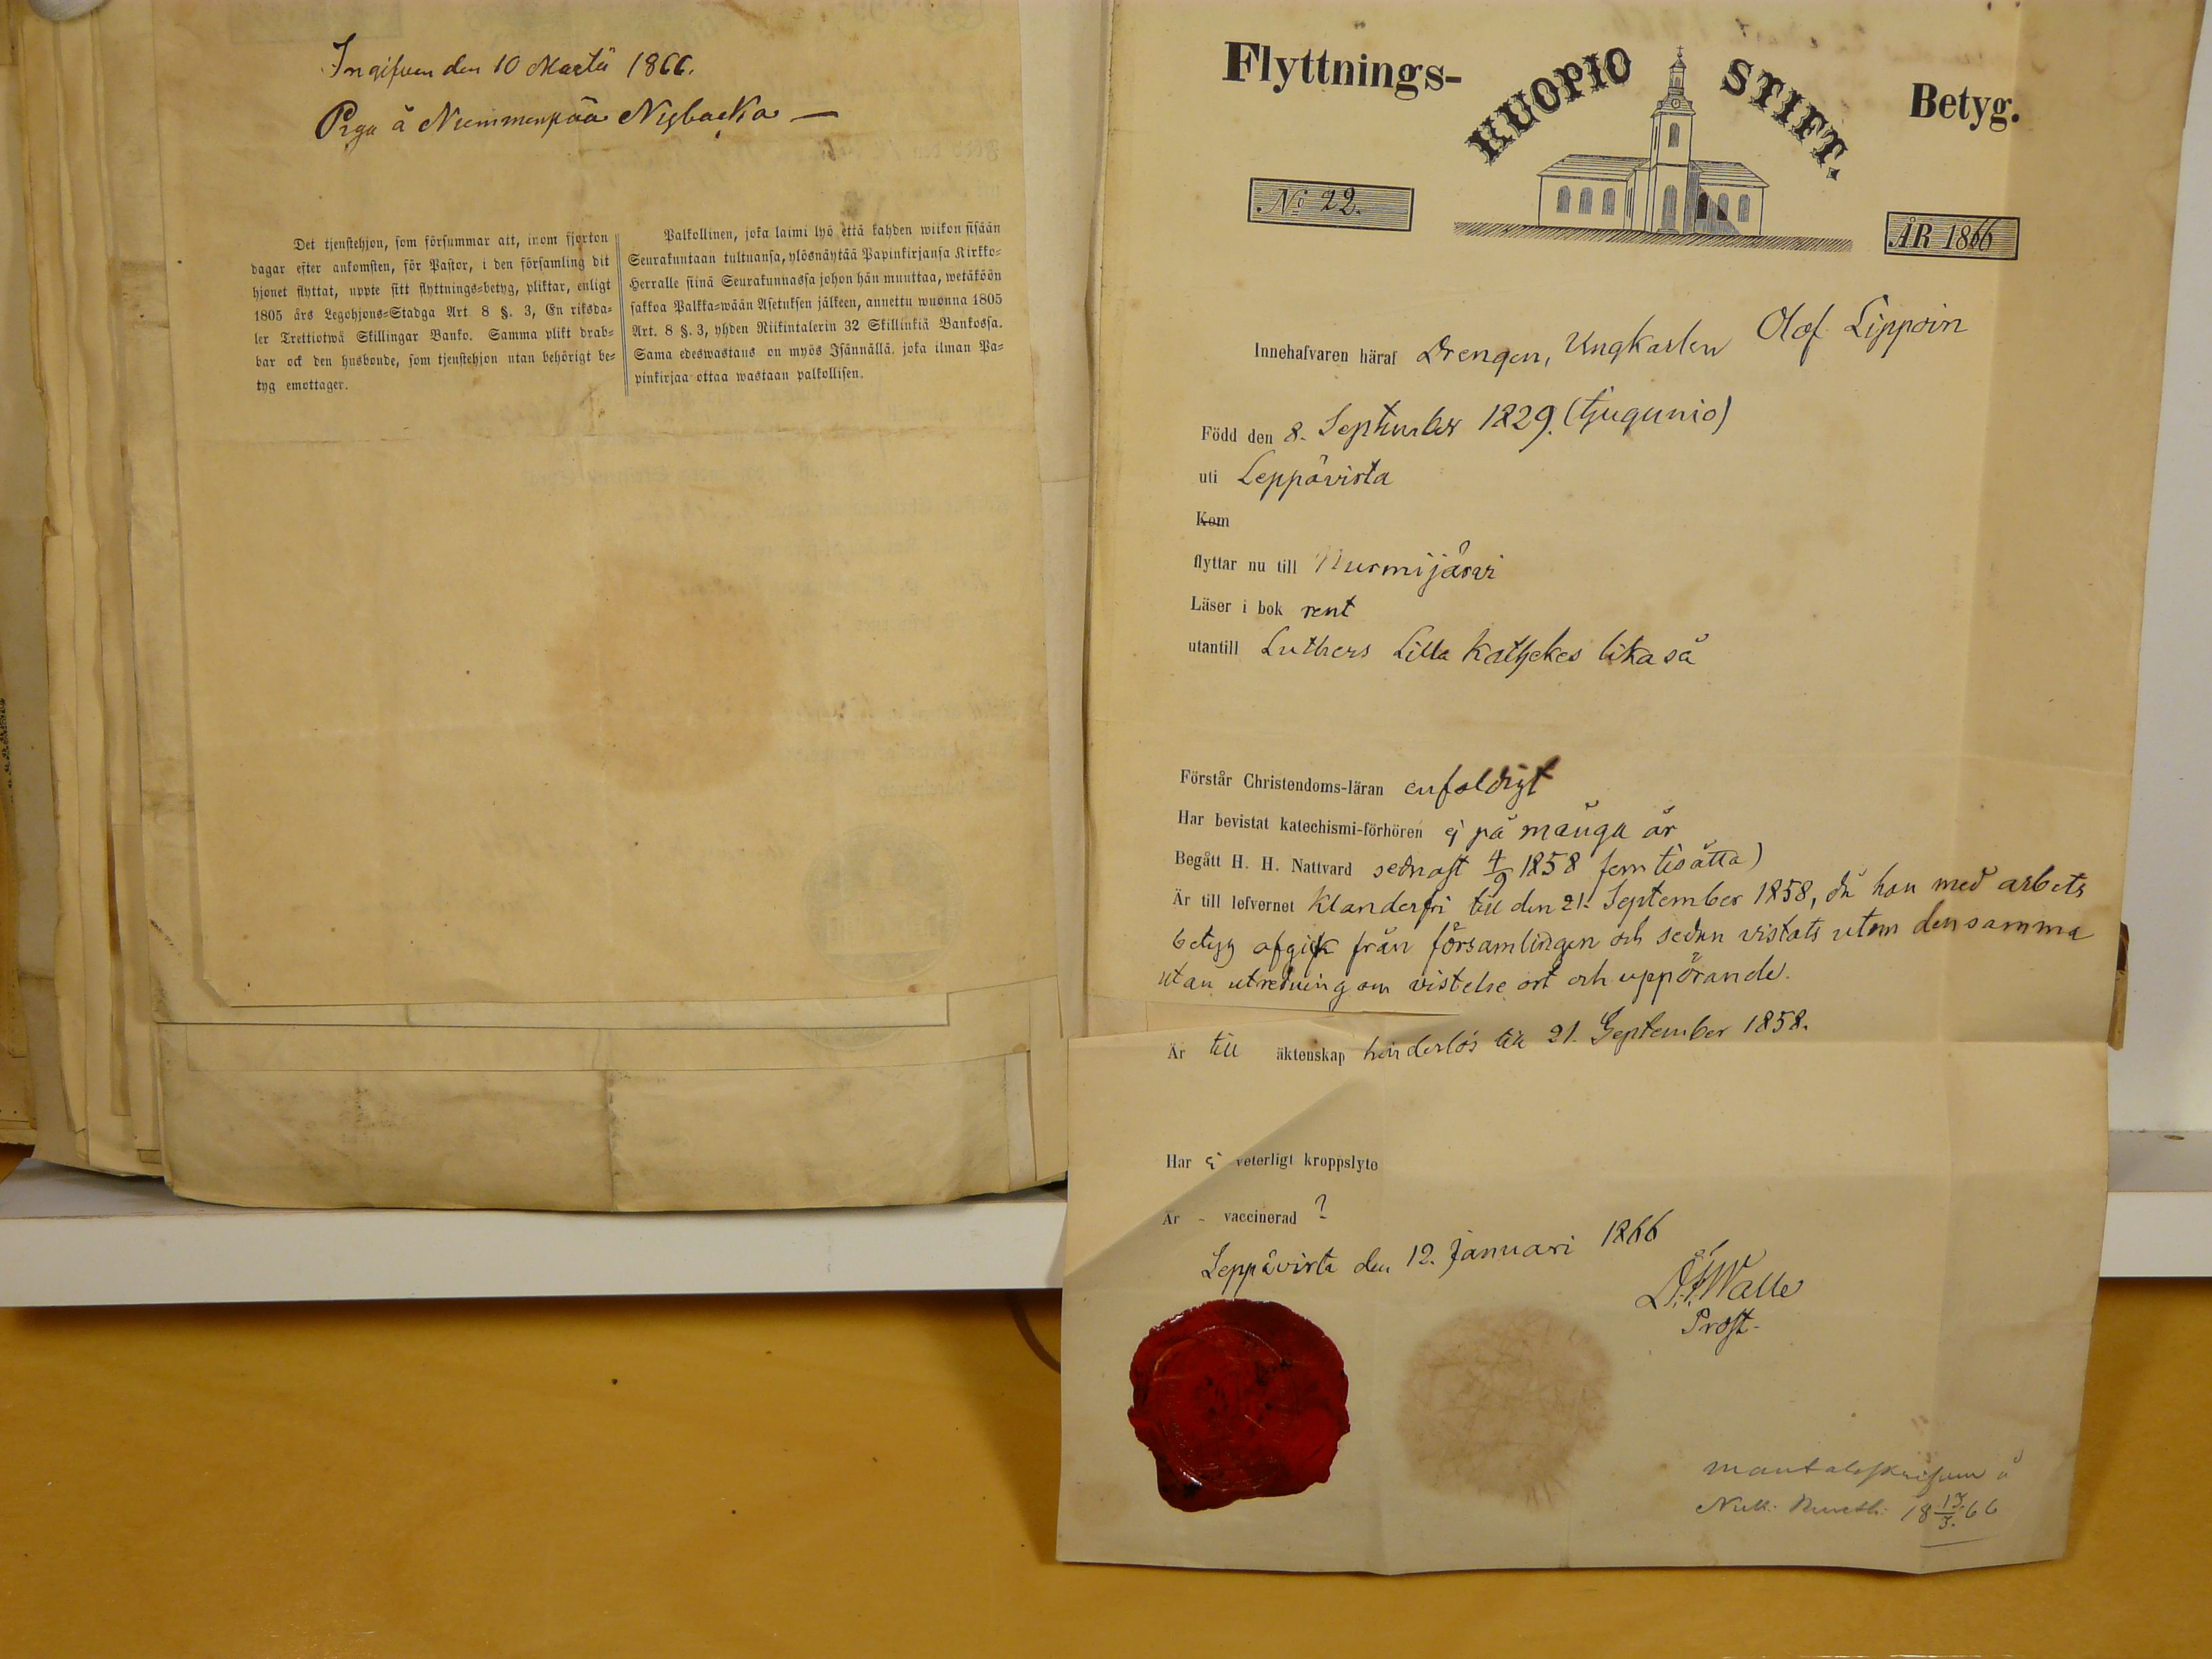 Ingifven den 10 Martii 1866.
Piga å Niemmenpää Nybacka —
Det tjenstehjon, som försummar att, inom fjorton
dagar efter ankomsten, för Pastor, i den församling dit
hjonet flyttat, uppte sitt flyttnings-betyg, pliktar, enligt
1805 års Legohjons-Stadga Art 8 §. 3, En riksda-
ler Trettiotwå Skillingar Banko. Samma plikt drab-
bar ock den husbonde, som tjenstehjon utan behörigt be-
tyg emottager.
Palkollinen, joka laimi lyö että kahden wiikon sisään
Seurakuntaan tultuansa, ylösnäytää Papinkirjansa Kirkko-
Herralle siinä Seurakunnassa johon hän muuttaa, wetäköön
sakkoa Palkka-wään Asetuksen jälkeen, annettu wuonna 1805
Art. 8 §. 3, yhden Riikintalerin 32 Skillinkiä Bankossa.
Sama edeswastaus on myös Isännällä, joka ilman Pa-
pinkirjaa ottaa wastaan palkollisen.
Flyttnings- KUOPIO STIFT. Betyg.
No 22.
ÅR 1866
Innehafvaren häraf Drengen, Ungkarlen Olof Lippoin
Född den 8. September 1829. (tjugunio)
uti Leppävirta
Kom
flyttar nu till Nurmijärvi
Läser i bok rent
utantill Luthers Lilla Kathekes likaså
Förstår Christendoms-läran enfaldigt
Har bevistat katechismi-förhören ej på många år
Begått H. H. Nattvard sednast 4/9 1858 femtioåtta)
Är till lefvernet klanderfri till den 21. September 1858, då han med arbets
betyg afgick från församlingen och sedan vistats utom densamma
utan utredning om vistelse ort och uppörande.
Är till äktenskap hinderlös till 21. September 1858.
Har ej veterligt kroppslyte
Är - vaccinerad ?
Leppävirta den 12. Januari 1866
Walle
Prost.
mantalsskrifven å
18 13/3. 66